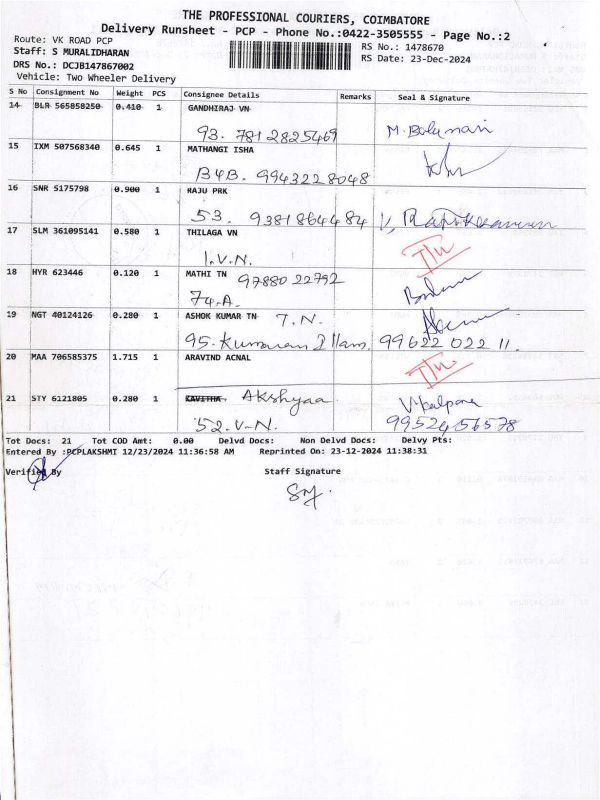 THE PROFESSIONAL COURIERS, COIMBATORE
Delivery Runsheet - PCP - Phone No.:0422-3505555 - Page No.:2
Route: VK ROAD PCP RS No.: 1478670
Staff: S MURALIDHARAN RS Date: 23-Dec-2024
DRS No.: DCJB147867002
Vehicle: Two Wheeler Delivery
S No Consignment No Weight PCS Consignee Details Remarks Seal & Signature
14 BLR 565058250 0.410 1 GANDHIRAJ VN
93. 7812825469 M. Balamani
15 IXM 507568340 0.645 1 MATHANGI ISHA
B4B. 9943228048
16 SNR 5175798 0.900 1 RAJU PRK
53. 9381864484
17 SLM 361095141 0.580 1 THILAGA VN
1.V.N.
18 HYR 623446 0.120 1 MATHI TN 9788022792
74.A.
19 NGT 40124126 0.280 1 ASHOK KUMAR TN T.N.
95. Kumaran Illam. 99622 022 11.
20 MAA 706585375 1.715 1 ARAVIND ACNAL
21 STY 6121805 0.280 1 KAVITHA Akshyaa V. Kalpana
52.V.N. 99524 56578
Tot Docs: 21 Tot COD Amt: 0.00 Delvd Docs: Non Delvd Docs: Delvy Pts:
Entered By :PCPLAKSHMI 12/23/2024 11:36:58 AM Reprinted On: 23-12-2024 11:38:31
Verified By Staff Signature